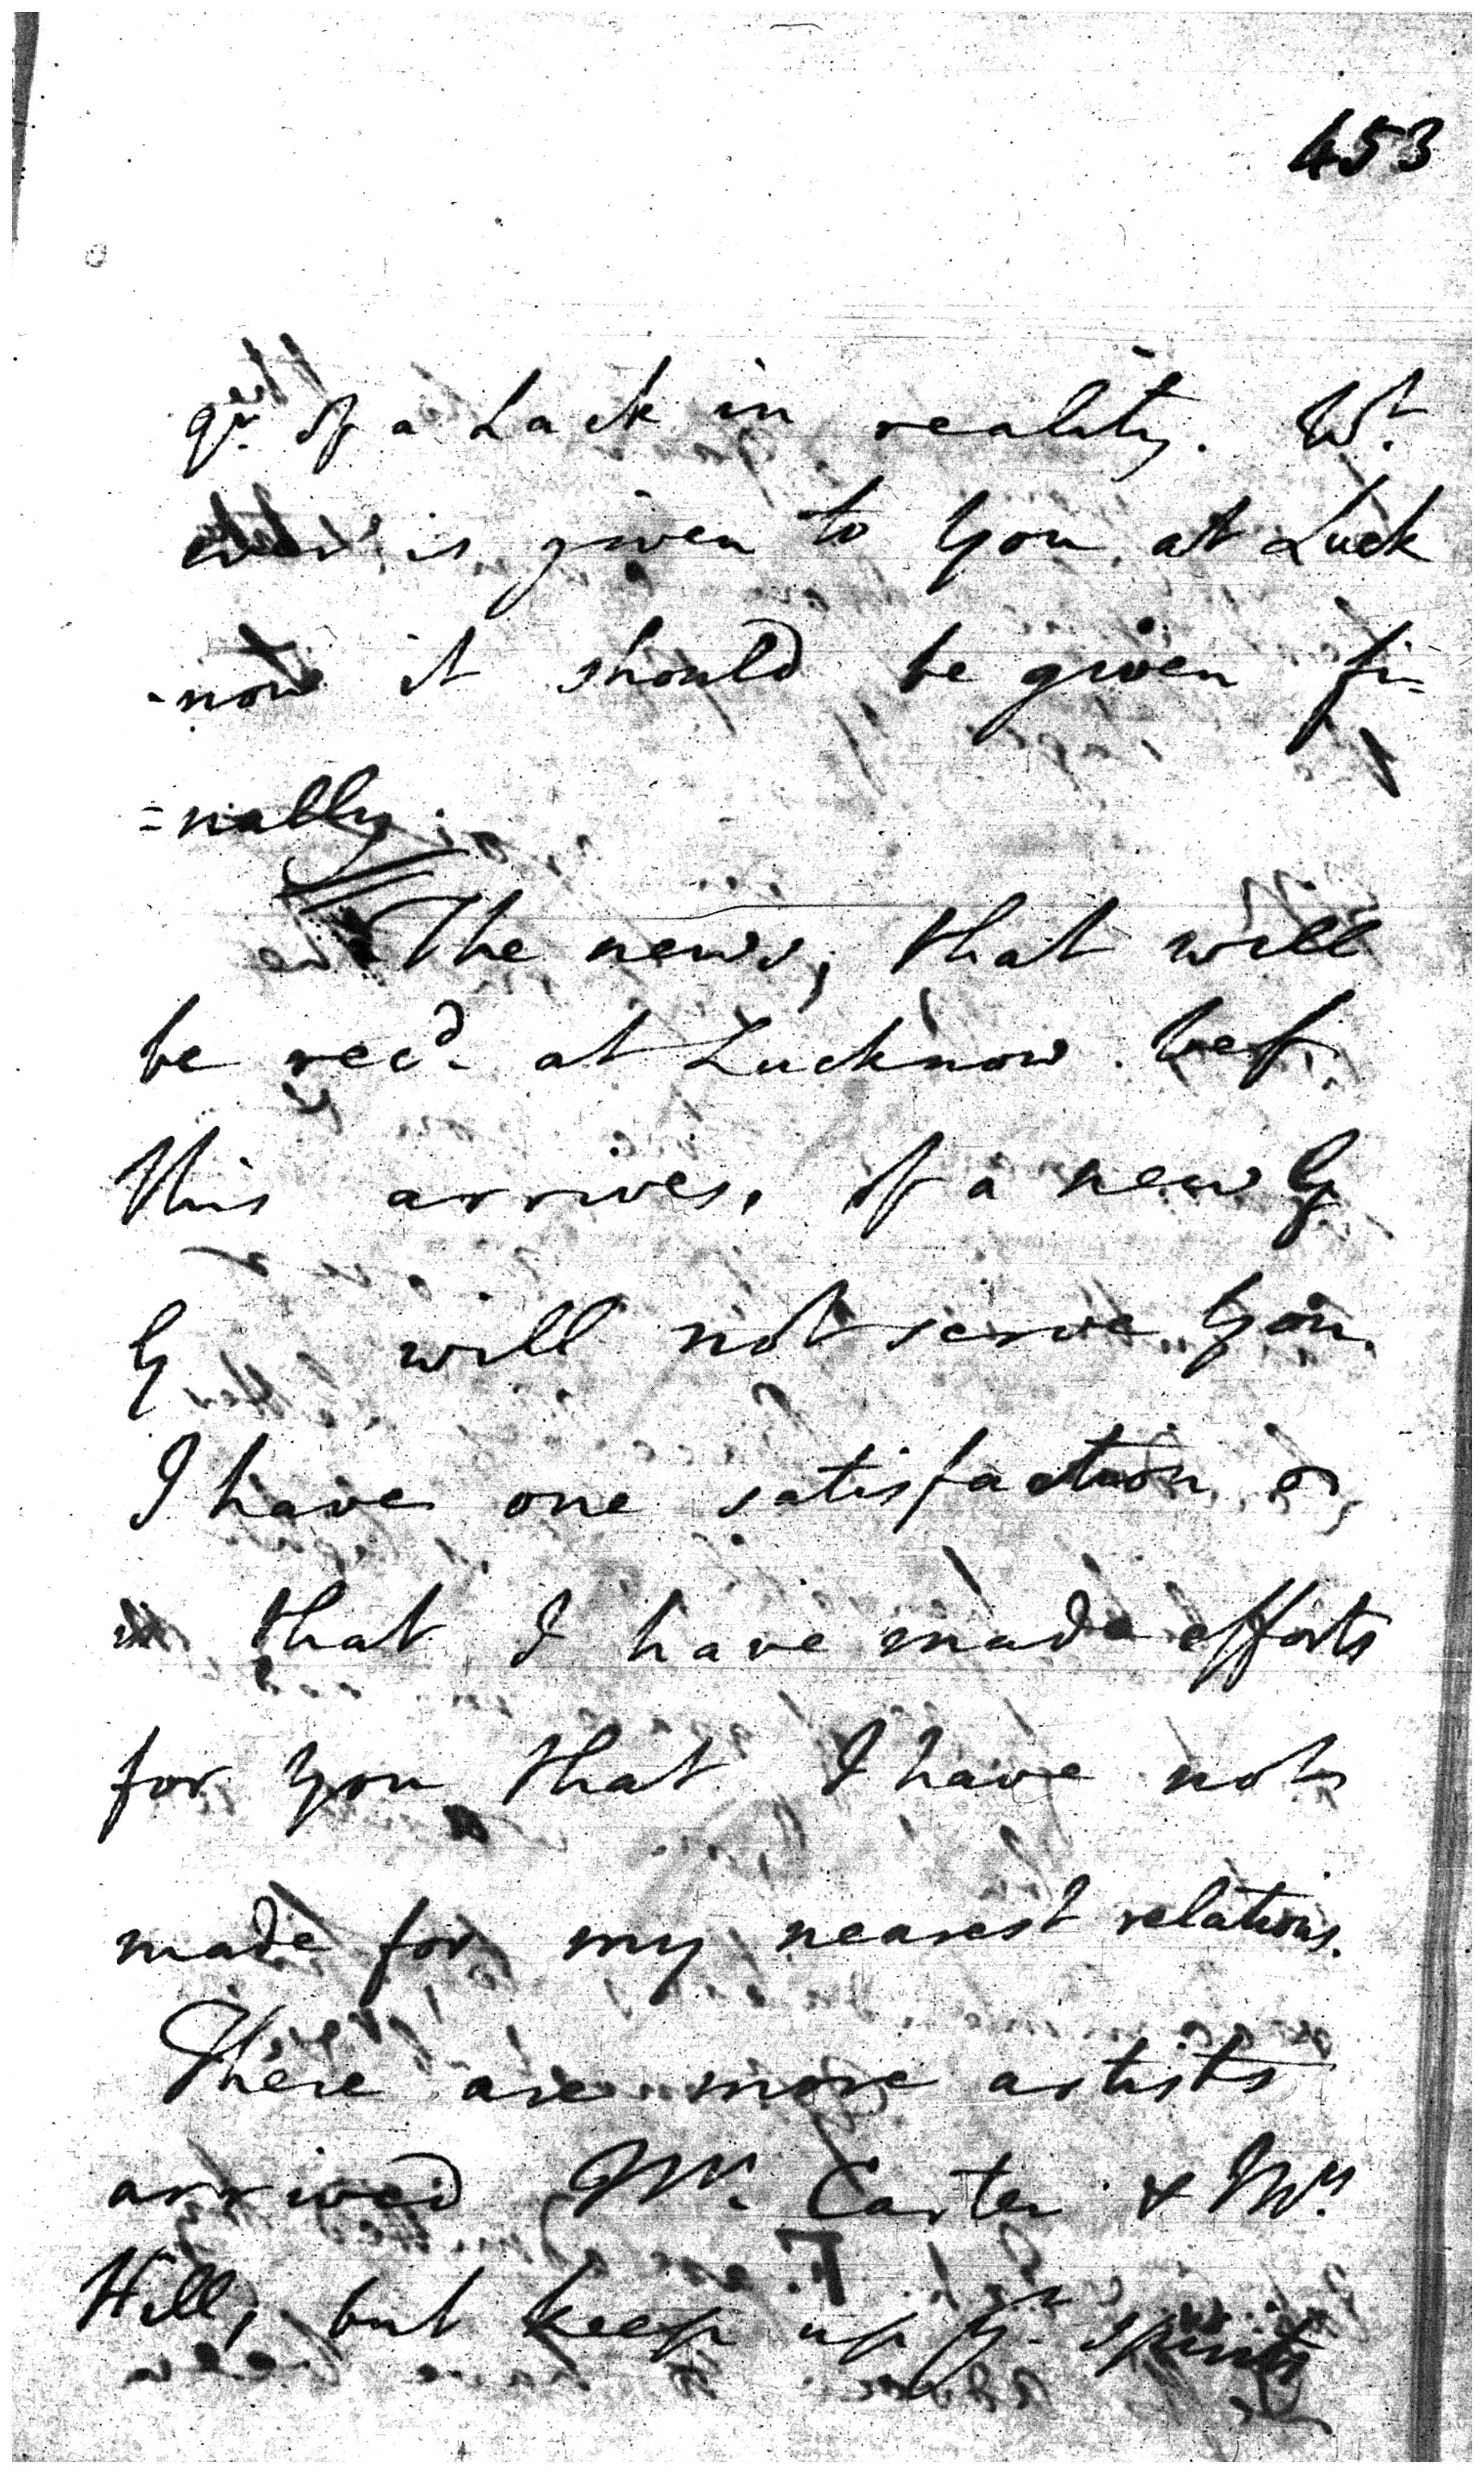 453
qr. of a Lack in reality. Wt.
ever is given to you at Luck
-now it should be given fi-
=nally.
The news, that will
be recd. at Lucknow bef.
this arrives, of a new G
G will not serve you.
I have one satisfaction
that I have made efforts
for you that I have not
made for my nearest relations.
There are more artists
arrived Mr. Carter & Mr.
Hill, but keep up yr. spirits